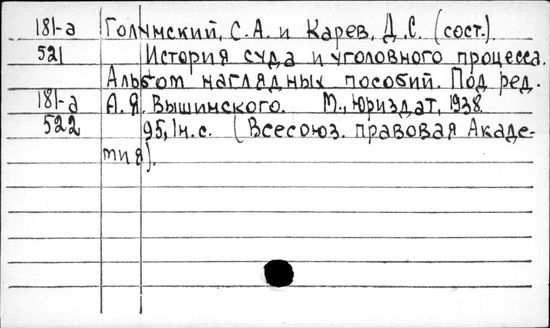 181-а Голунский, С.А. и Карев, Д.С. (сост.).
521 История суда и уголовного процесса.
Альбом наглядных пособий. Под ред.
181-а А.Я. Вышинского. М., Юриздат, 1938.
522 95, 1н.с. (Всесоюз. правовая Акаде-
мия).